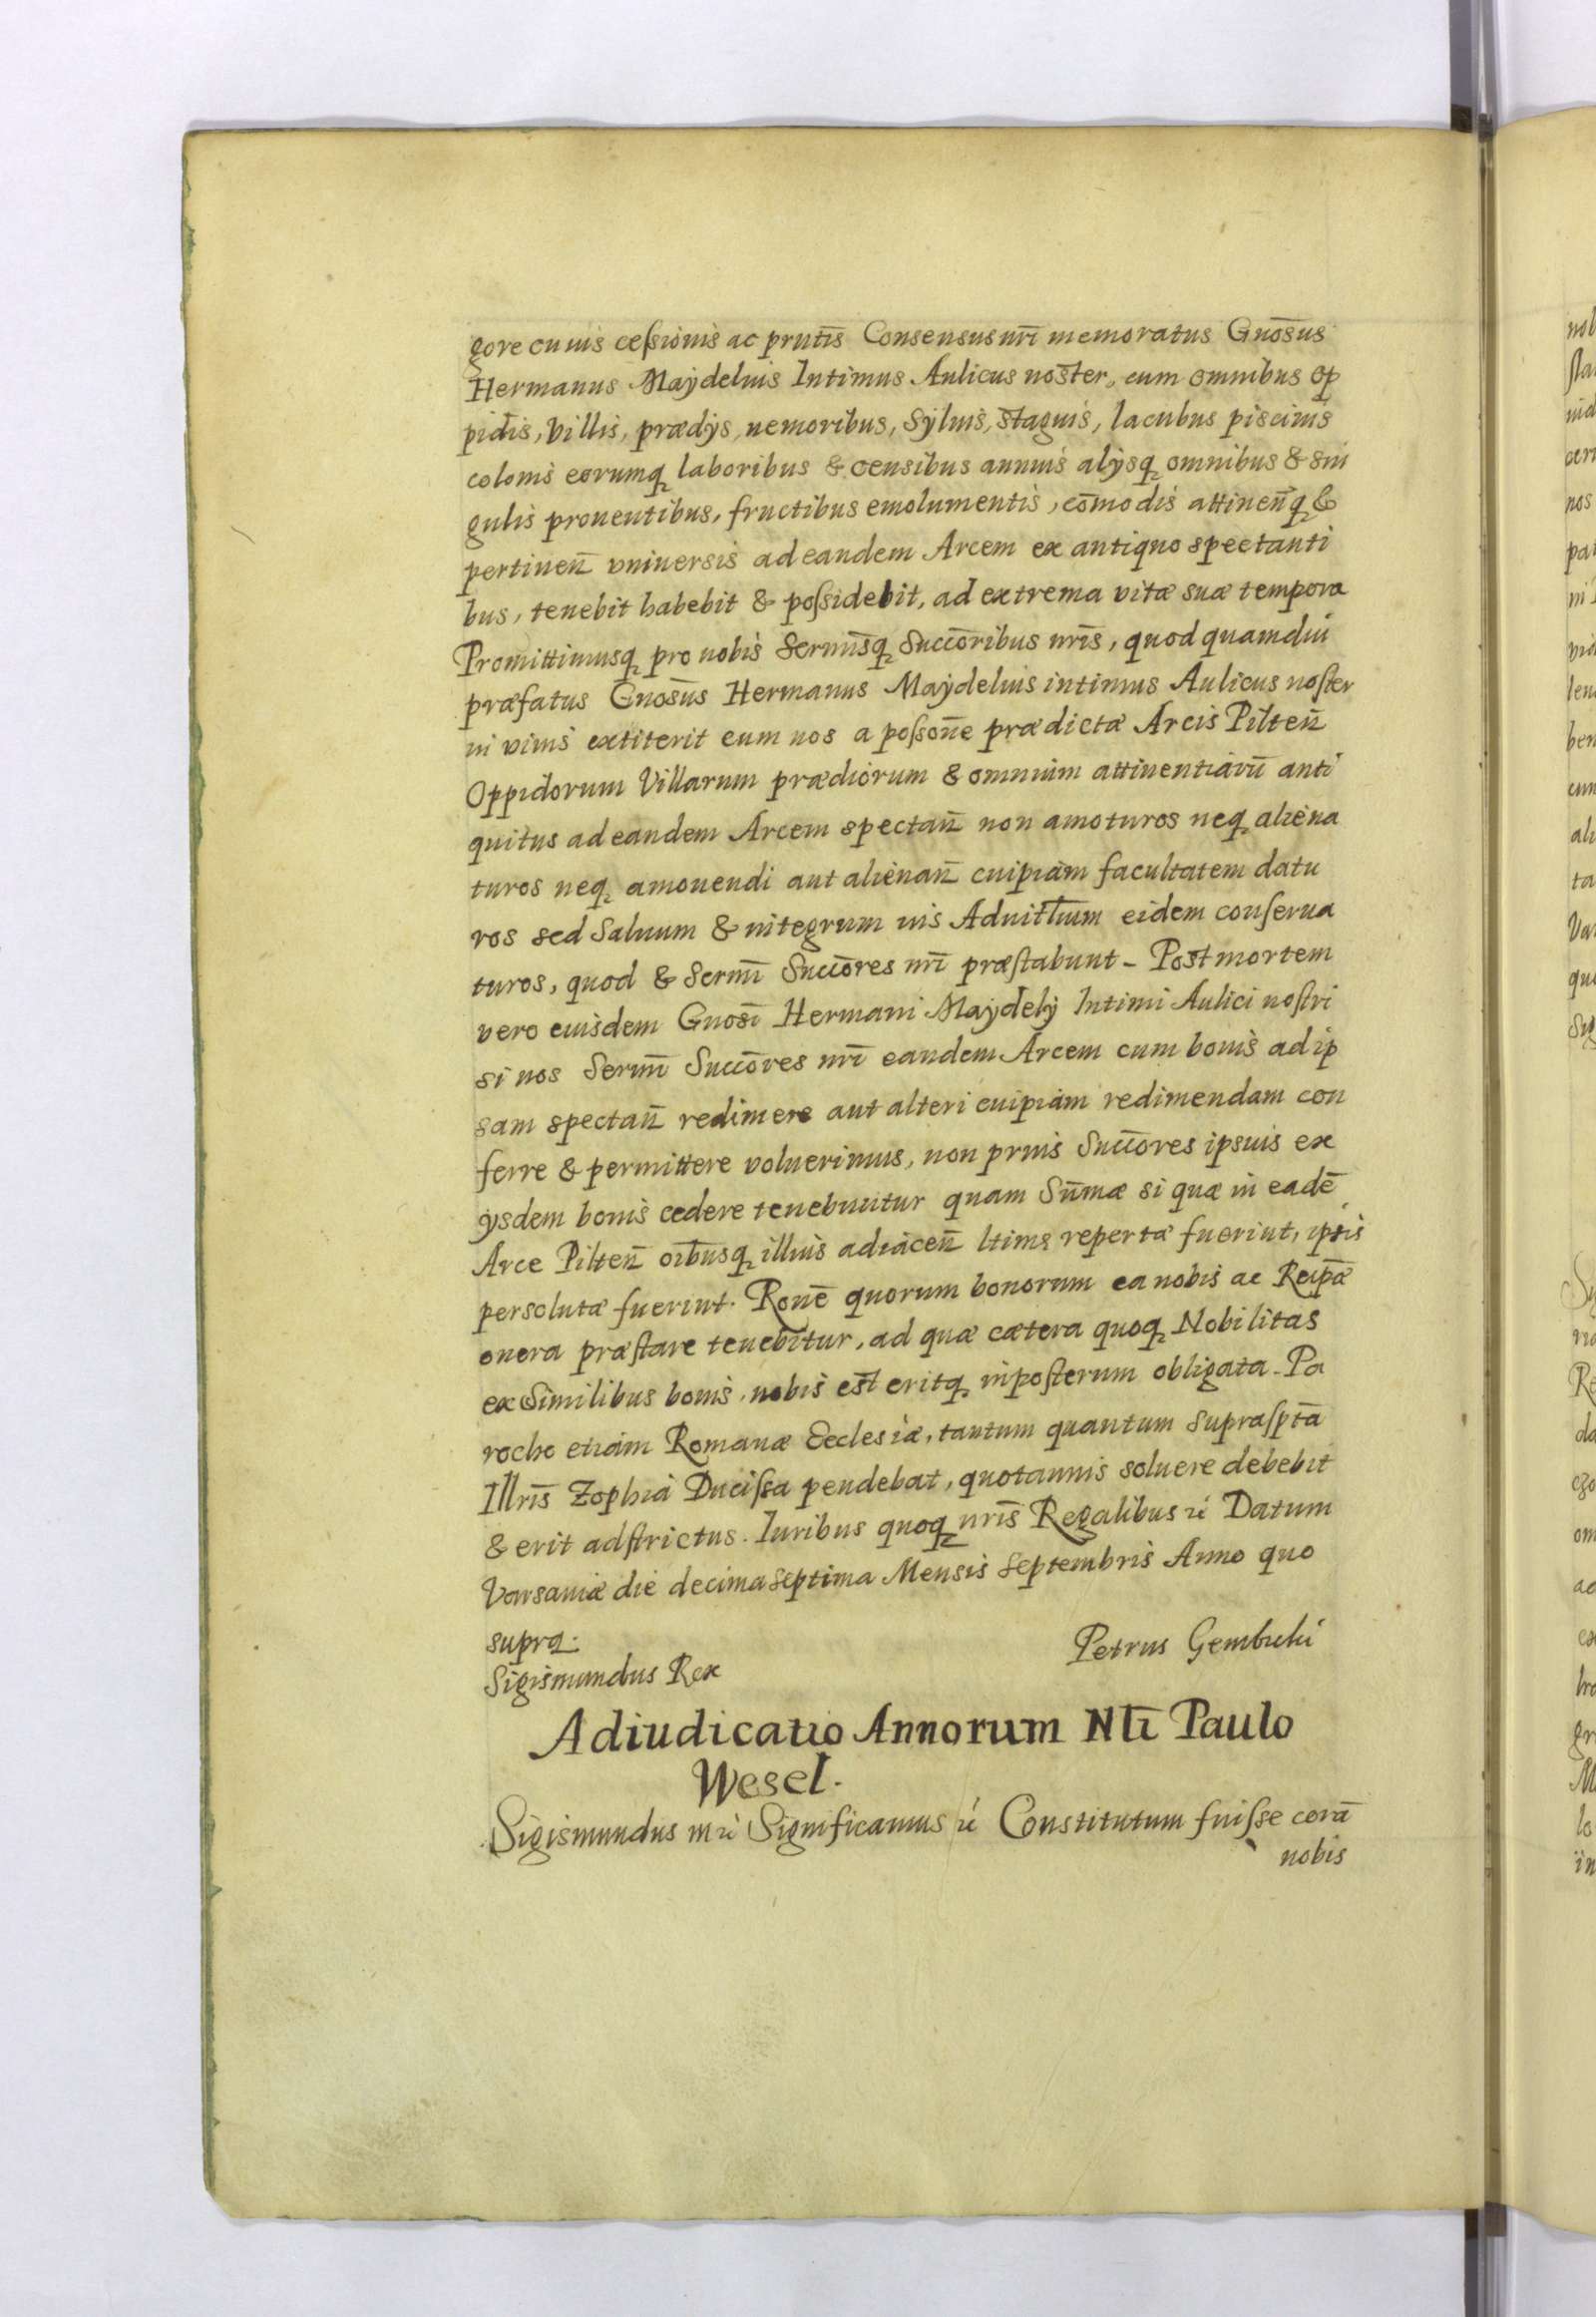 gore cuius ceſsionis ac prutis̄ Consensus nri̅ memoratus Gnos̄us
Hermanus Maÿdelius Intimus Aulicus noster, cum omnibus op
pidis, Villis, prædÿs, nemoribus, Syluis, Stagnis, lacubus piscinis
colonis eorumq₂ laboribus & censibus annuis alÿsq₂ omnibus & sin
gulis prouentibus, fructibus emolumentis, co̅modis attinen̅q₂ &
pertinen̅ vniuersis ad eandem Arcem ex antiquo spectanti
bus, tenebit habebit & poſsidebit, ad extrema vitæ suæ tempora
Promittimusq₂ pro nobis Sermis̄q₂ Succo̅ribus nri̅s, quod quamdiu
præfatus Gnos̄us Hermanus Maÿdelius intimus Aulicus noſter
in viuis extiterit eum nos a poſsone̅ prædictæ Arcis Pilten̅
Oppidorum Villarum prædiorum & omnium attinentiaru̅ anti
quitus ad eandem Arcem spectan̅ non amoturos neq₂ aliena
turos neq₂ amouendi aut alienan̅ cuipiam facultatem datu
ros sed Saluum & integrum ius Aduitl̅ium eidem conſerua
turos, quod & Sermi̅ Succo̅res nri̅ præſtabunt - Post mortem
vero eiusdem Gnosi̅ Hermani Maÿdelÿ Intimi Aulici noſtri
si nos Sermi̅ Succo̅res nri̅ eandem Arcem cum bonis ad ip
sam spectan̅ redimere aut alteri cuipiam redimendam con
ferre & permittere voluerimus, non prius Succo̅res ipsius ex
ÿsdem bonis cedere tenebuntur quam Su̅mæ si quæ in eade̅
Arce Pilten̅ oibus̄q₂ illius adiacen̅ ltime repertæ fuerint, ipsis
persolutæ fuerint. Rone̅ quorum bonorum ea nobis ac Reipæ̅
onera præſtare tenebitur, ad quæ cætera quoq₂ Nobilitas
ex Similibus bonis, nobis est eritq₂ inpoſterum obligata. Pa
rocho etiam Romanæ Ecclesiæ, tantum quantum supraſpta̅
Illris̄ Zophia Duciſsa pendebat, quotannis soluere debebit
& erit adſtrictus. Iuribus quoq₂ nri̅s Regalibus ꝛc Datum
Varsauiæ die decima septima Mensis Septembris Anno quo
supra.
Petrus Gembicki
Sigismundus Rex
Adiudicatio Annorum Nli̅ Paulo
Wesel.
Sigismundus III ꝛc Significamus ꝛc Constitutum fuiſse cora̅
nobis